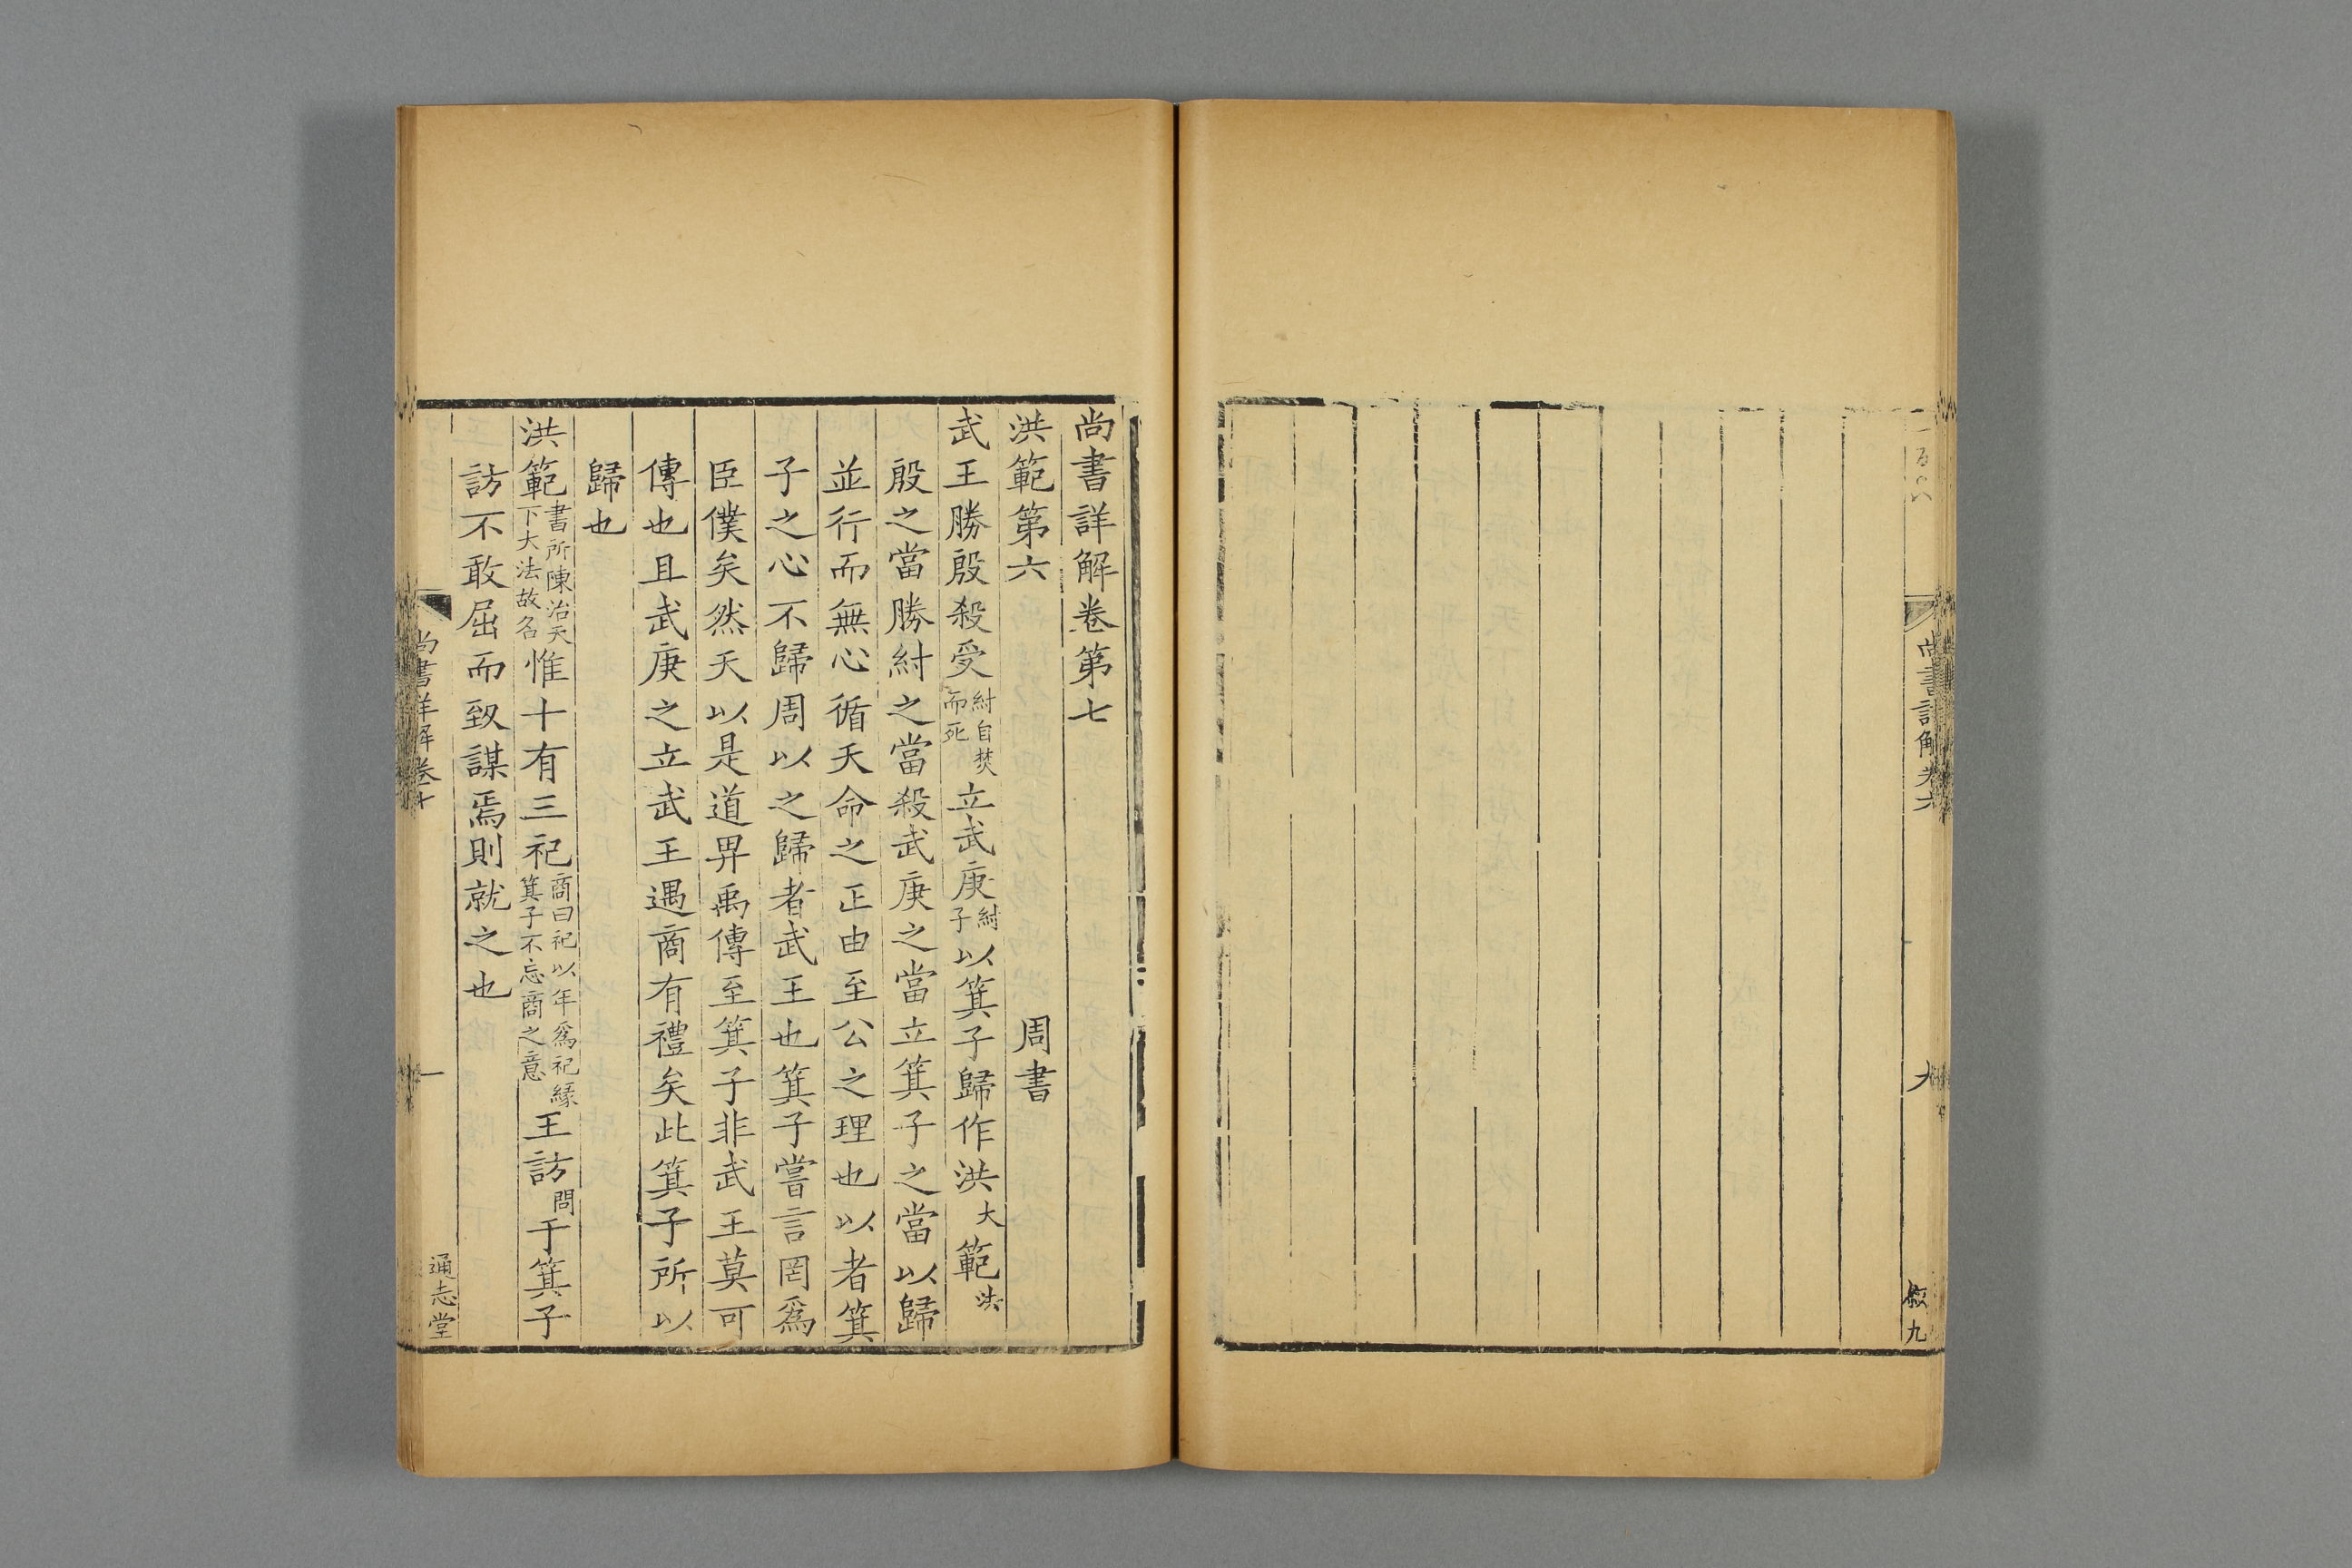 尚書詳解卷六
九
尚書詳解卷第七
洪範第六 周書
武王勝殷殺受紂自焚而死立武庚紂子以箕子歸作洪大範法
殷之當勝紂之當殺武庚之當立箕子之當以歸
並行而無心循天命之正由至公之理也以者箕
子之心不歸周以之歸者武王也箕子嘗言罔爲
臣僕矣然天以是道畀禹傳至箕子非武王莫可
傳也且武庚之立武王遇商有禮矣此箕子所以
歸也
洪範書所陳治天下大法故名惟十有三祀商曰祀以年爲祀縁箕子不忘商之意王訪問于箕子
訪不敢屈而致謀焉則就之也
尚書詳解卷七
一
通志堂